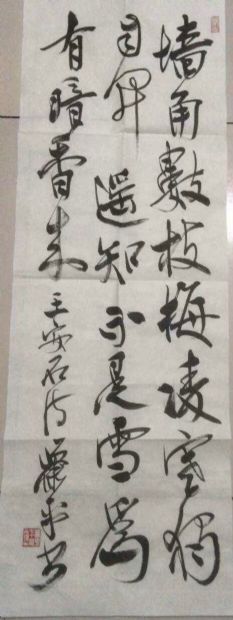 墙角数枝梅凌寒独
自开 遥知不是雪为
有暗香来 王安石诗